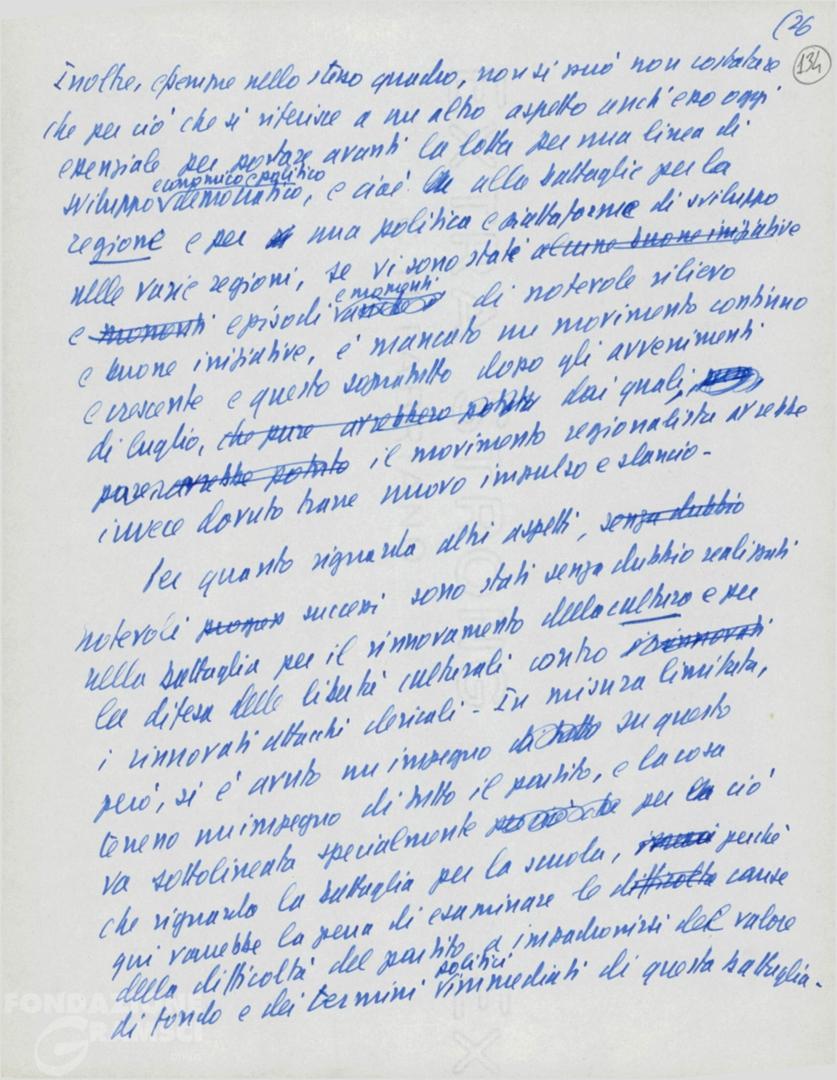 (26
134
Inoltre, e sempre nello stesso quadro, non si può non constatare
che per ciò che si riferisce a un altro aspetto anch'esso oggi
essenziale per portare avanti la lotta per una linea di
economico e politico
sviluppo democratico, e cioè alla battaglia per la
regione e per una politica e piattaforme di sviluppo
nelle varie regioni, se vi sono state alcune buone iniziative
e momenti
e momenti episodi di notevole rilievo
e buone iniziative, è mancato un movimento continuo
e crescente e questo sopratutto dopo gli avvenimenti
di luglio, che pure avrebbero potuto dai quali,
pure, avrebbe potuto il movimento regionalista avrebbe
invece dovuto trarre nuovo impulso e slancio -
Per quanto riguarda altri aspetti, senza dubbio
notevoli successi sono stati senza dubbio realizzati
nella battaglia per il rinnovamento della cultura e per
la difesa delle libertà culturali contro i rinnovati
i rinnovati attacchi clericali - In misura limitata,
però, si è avuto un impegno di tutto su questo
terreno un impegno di tutto il partito, e la cosa
va sottolineata specialmente per ciò
che riguarda la battaglia per la scuola, perché
qui varrebbe la pena di esaminare le difficoltà cause
della difficoltà del partito a impadronirsi del valore
politici
di fondo e dei termini immediati di questa battaglia.
FONDAZIONE
GRAMSCI